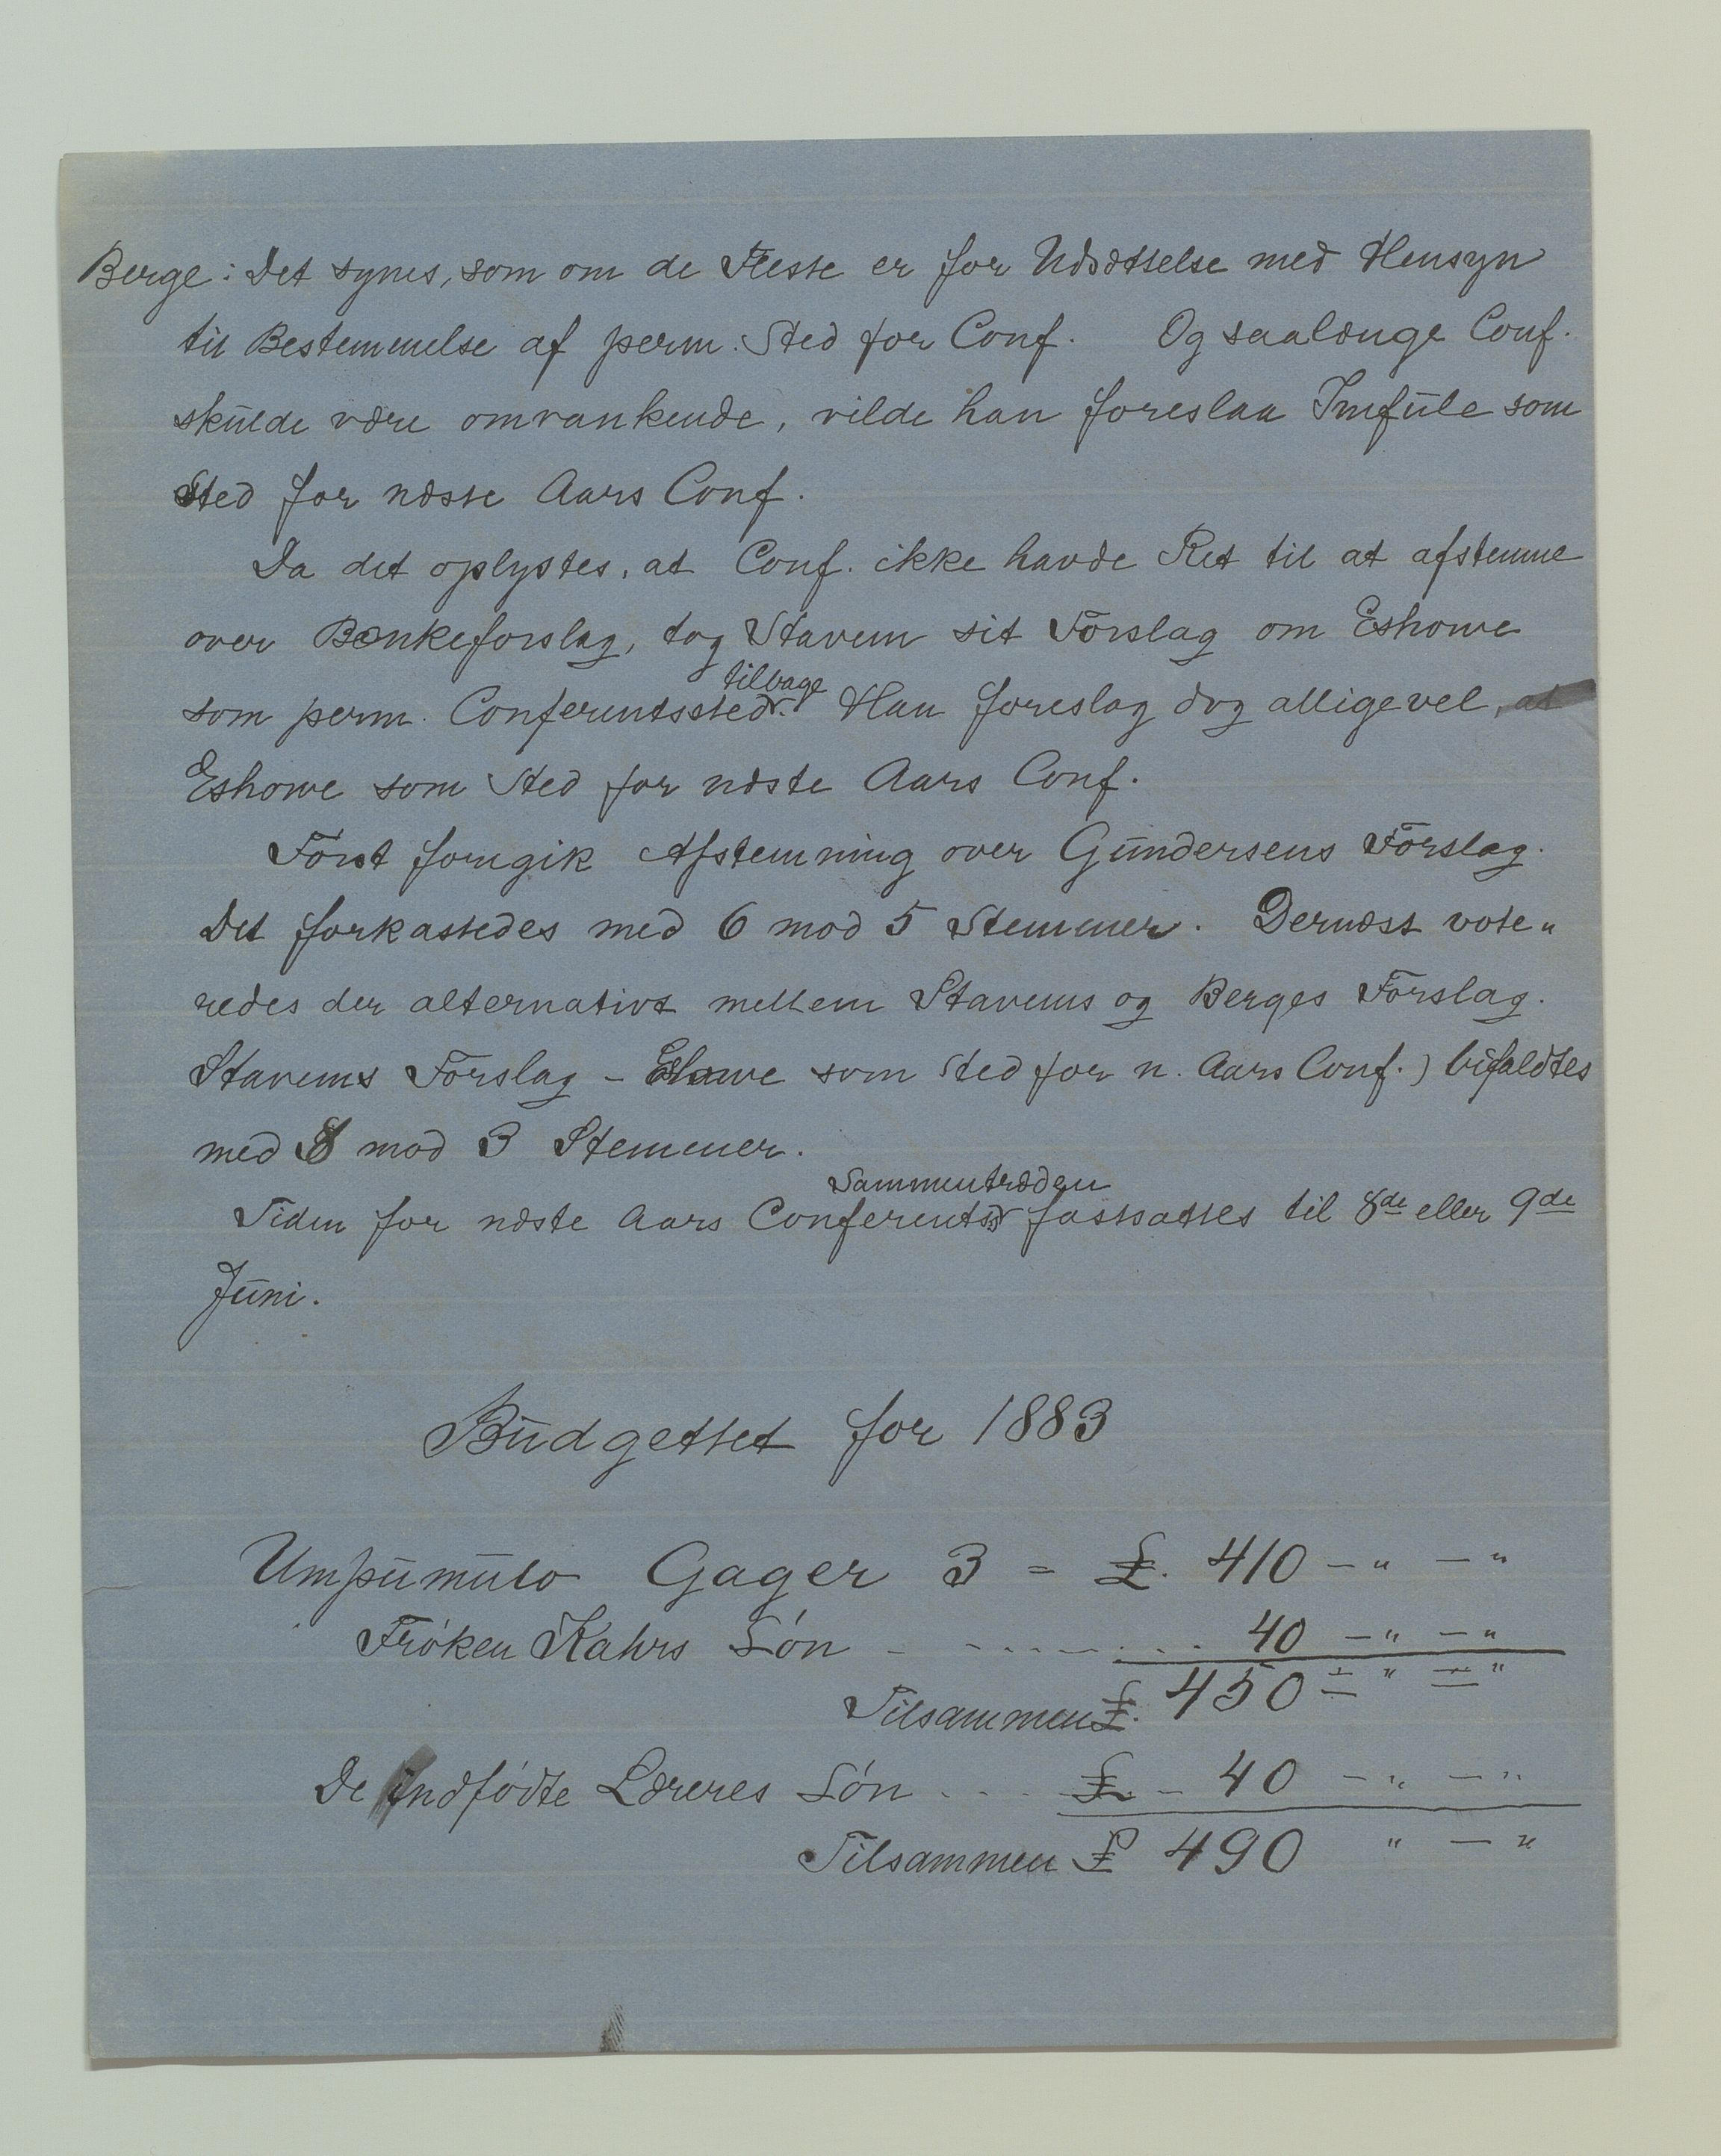 Berge: Det synes, som om de Fleste er for Udsættelse med Hensyn
til Bestemmelse af perm. Sted for Conf. Og saalænge Conf.
skulde være omvankende, vilde han foreslaa Imfule som
Sted for næste Aars Conf.
Da det oplystes, at Conf. ikke havde Ret til at afstemme
over Bænkeforslag, tog Stavem sit Forslag om Eshowe
tilbage
som perm. Conferentssted. Han foreslog dog alligevel, at
Eshowe som Sted for næste Aars Conf.
Først foregik Afstemning over Gundersens Forslag.
Det forkastedes med 6 mod 5 Stemmer. Dernæst vote„
redes der alternativt mellem Stavems og Berges Forslag.
Stavems Forslag - Eshowe som Sted for n. Aars Conf.) bifaldtes
med 8 mod 3 Stemmer.
Sammentræden
Tiden for næste Aars Conferents fastsattes til 8de eller 9de
Juni.
Budgettet for 1883
Umpumulo Gager 3 = £. 410 – „ – „
Frøken Kahrs Løn - - - - - - - . . 40 – „ – „
Tilsammen £. 450 = „ = „
De Indfødte Læreres Løn . . . . £. – 40 – „ – „
Tilsammen £ 490 „ – „